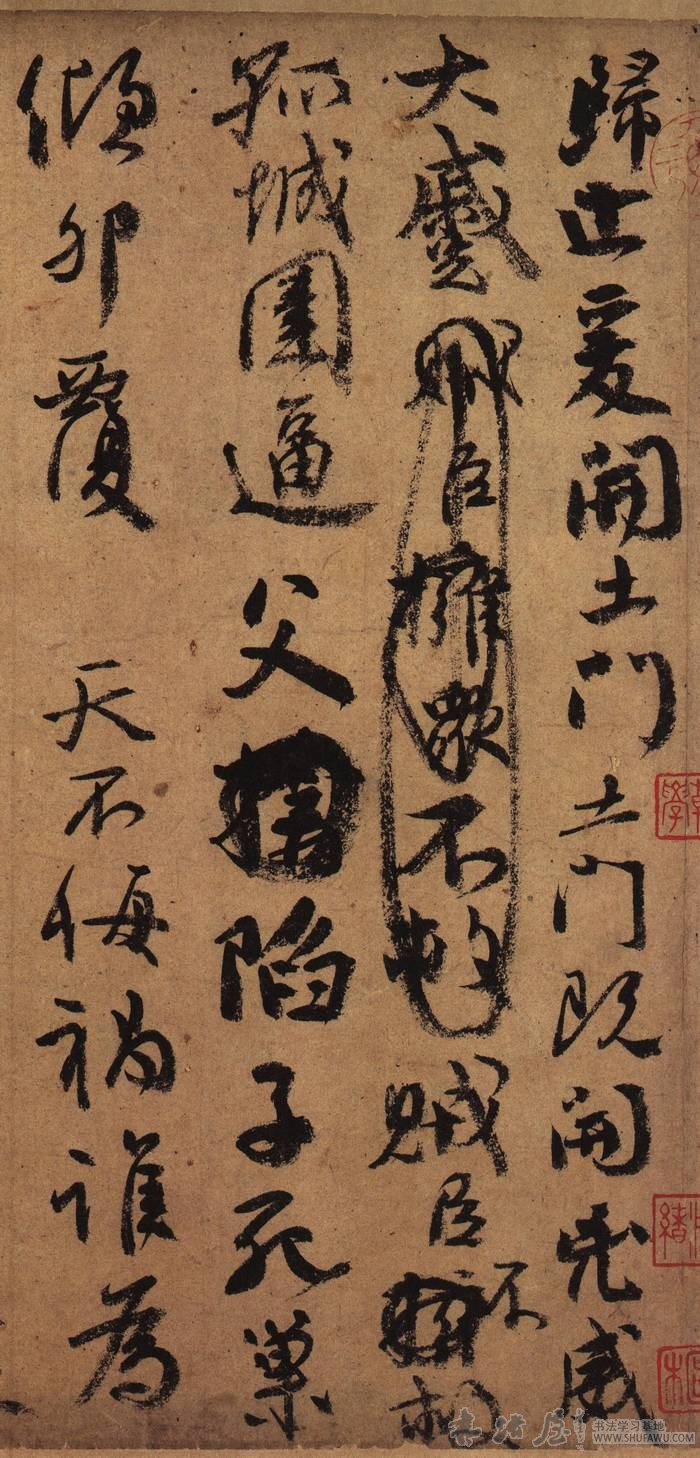 歸止爰開土門土門既開凶威
大蹙賊臣擁衆不救賊臣不救
孤城圍逼父陷子死巢
傾卵覆 天不悔禍誰為
书法学习基地
WWW.SHUFAWU.COM